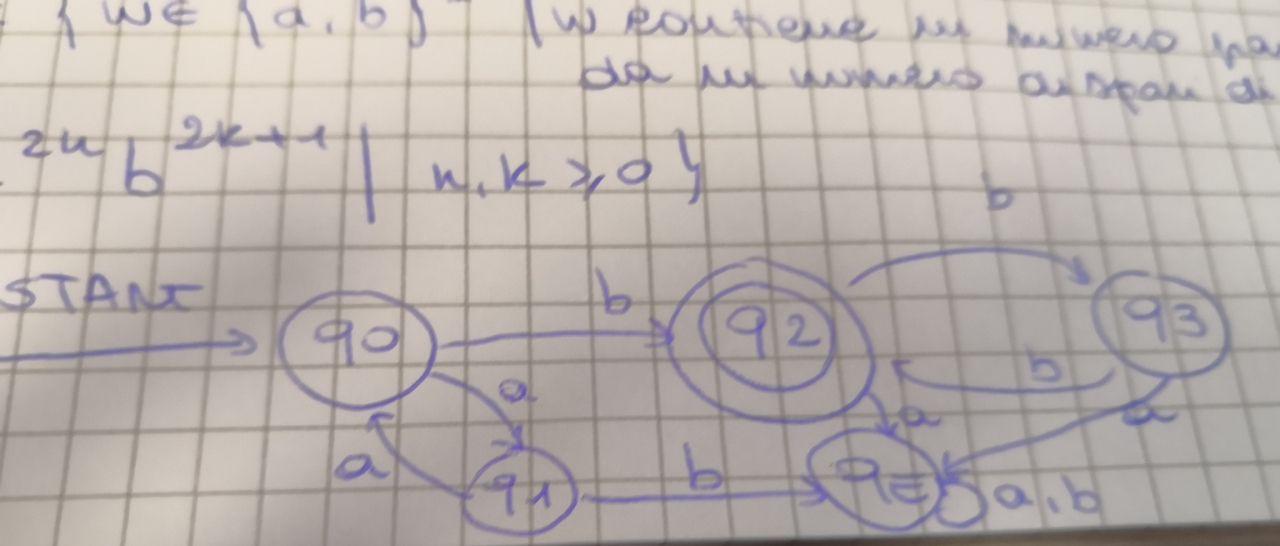 { w ∈ {a, b} | w contiene un numero
da un numero dispari di
2n b 2k+1 | n, k ≥ 0 }
b
START q0 b q2 q3
b
a a a
a q1 b qE a, b